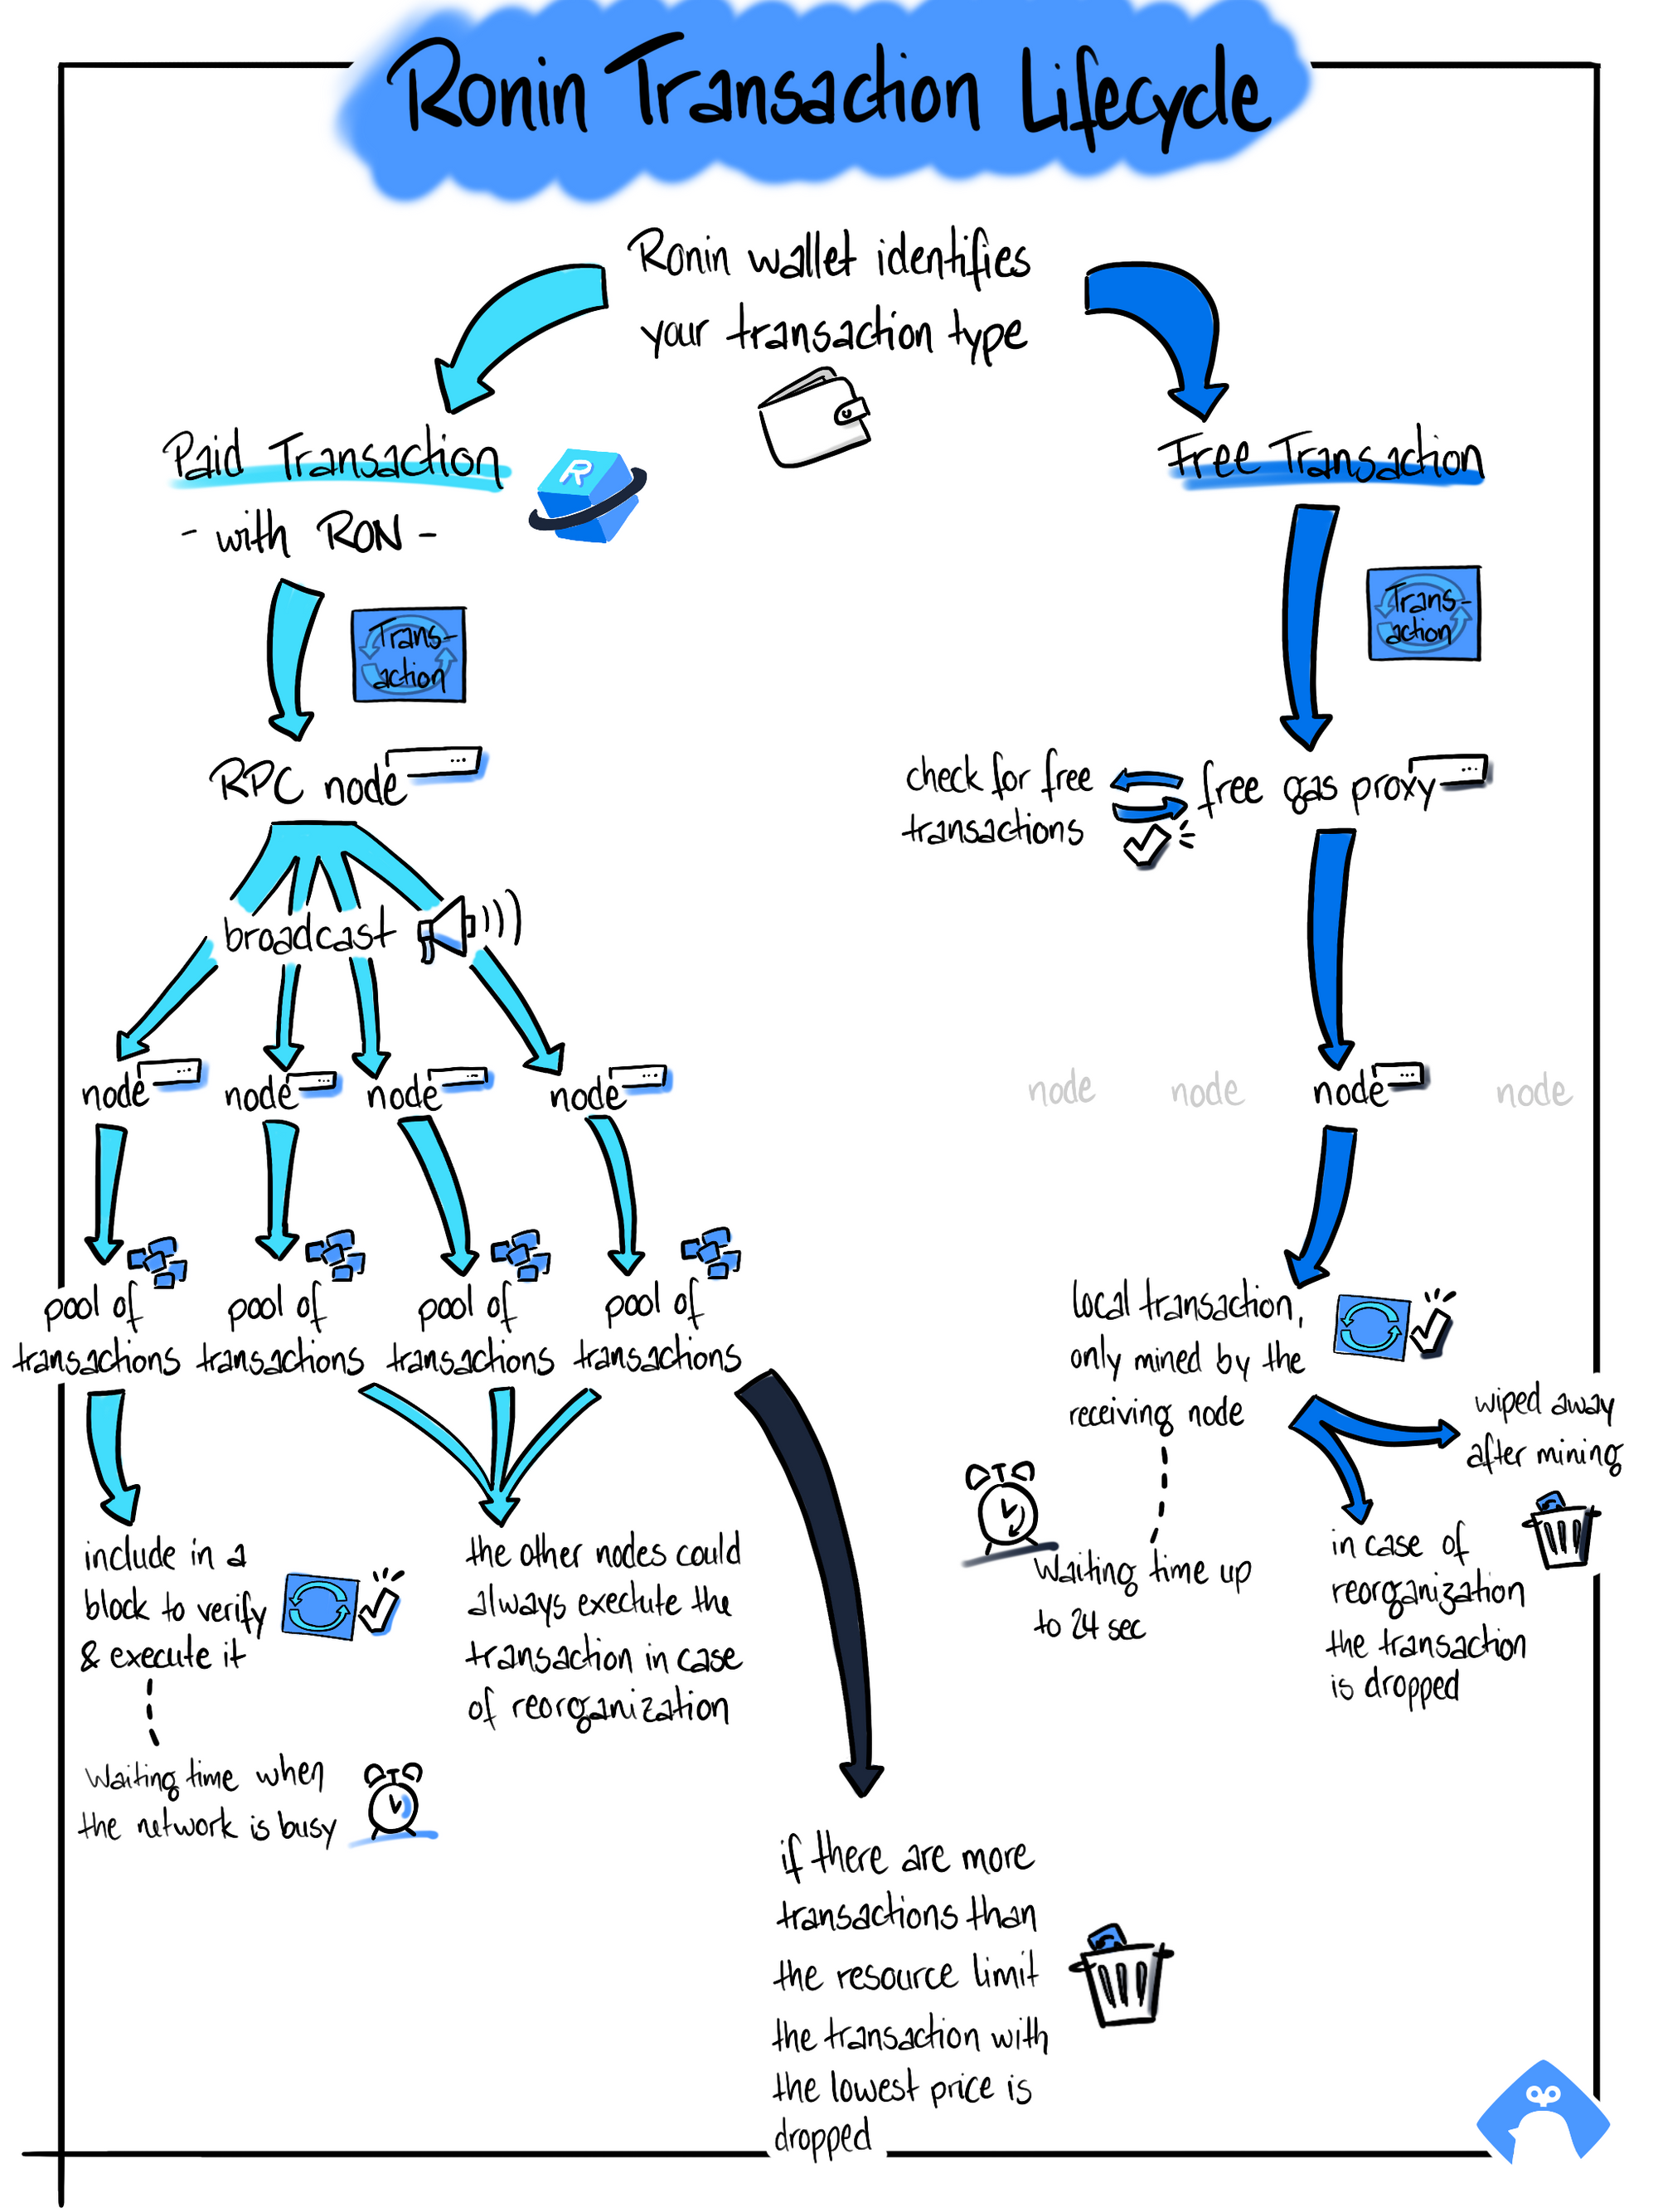 Ronin Transaction Lifecycle
Ronin wallet identifies
your transaction type
Paid Transaction
- with RON -
R
Trans-
action
RPC node
broadcast
node
node
node
node
pool of
transactions
pool of
transactions
pool of
transactions
pool of
transactions
include in a
block to verify
& execute it
Waiting time when
the network is busy
the other nodes could
always exectute the
transaction in case
of reorganization
if there are more
transactions than
the resource limit
the transaction with
the lowest price is
dropped
Free Transaction
Trans-
action
check for free
transactions
free gas proxy
node
node
node
node
local transaction,
only mined by the
receiving node
Waiting time up
to 24 sec
wiped away
after mining
in case of
reorganization
the transaction
is dropped